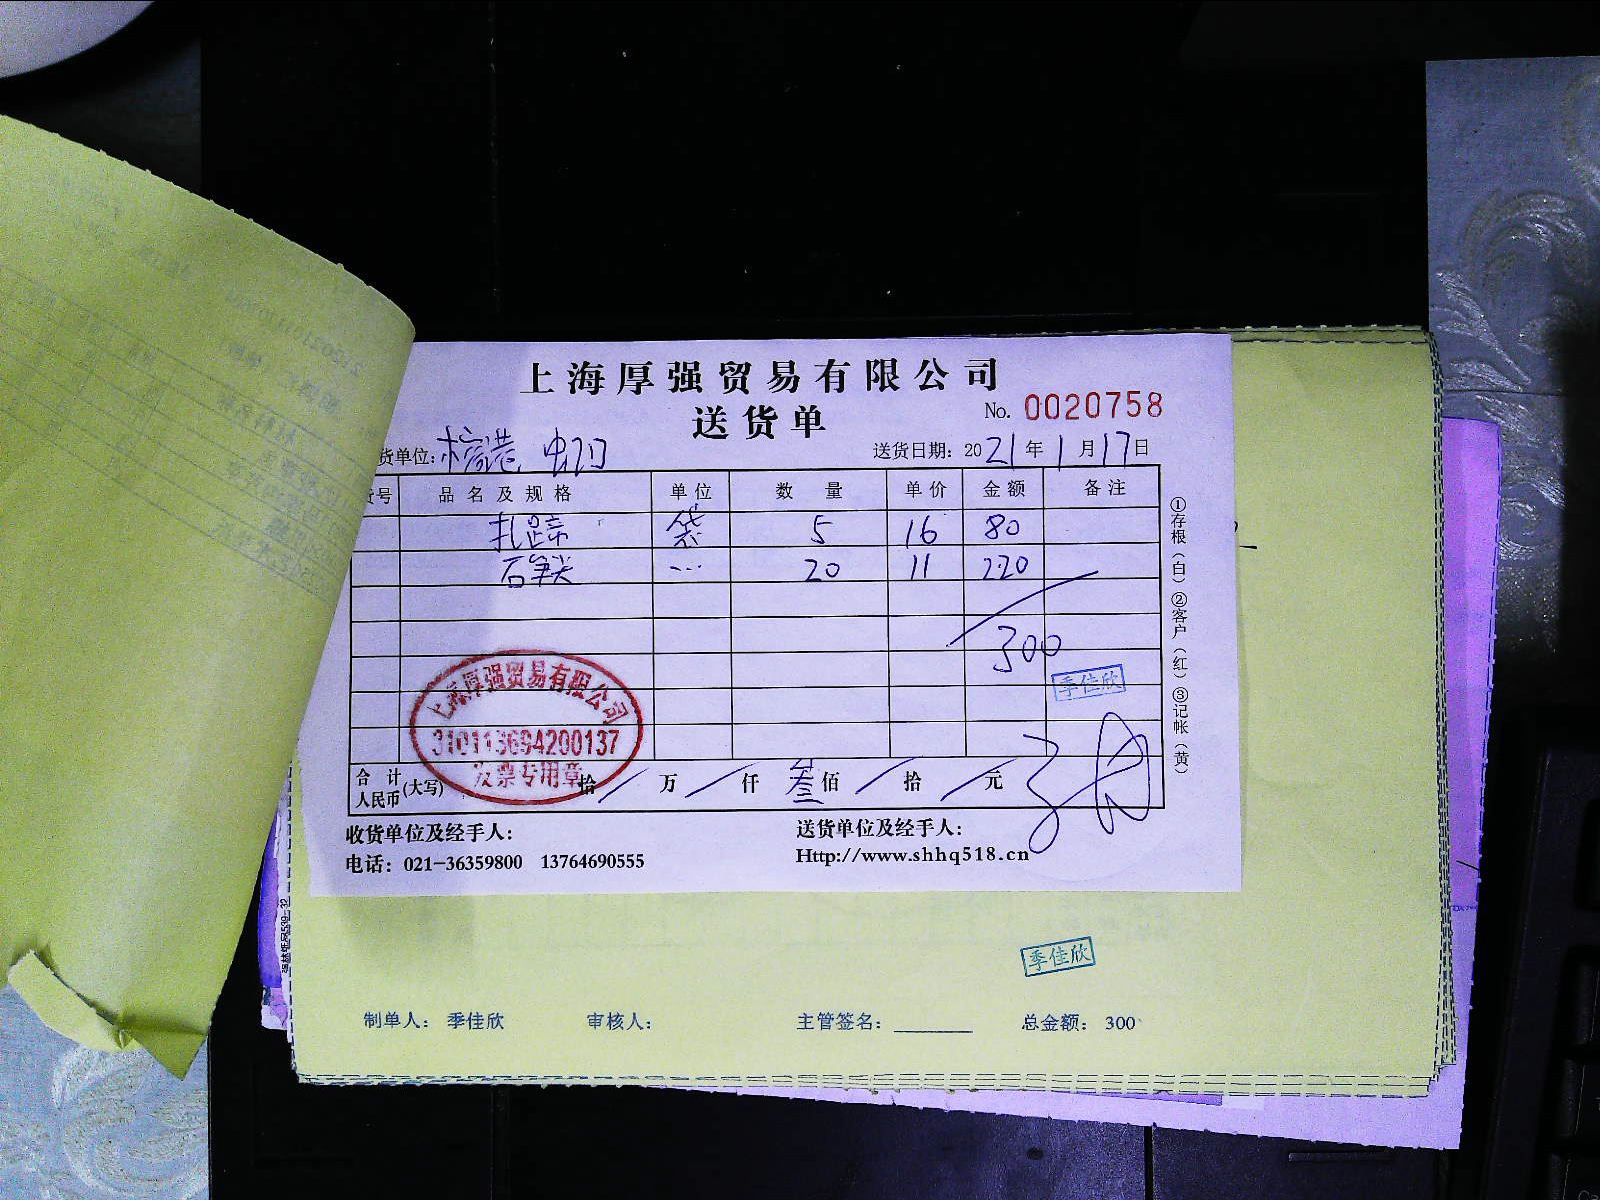 上海厚强贸易有限公司
送货单
No. 0020758
货单位:
送货日期: 2021年1月17日
货号 品名及规格 单位 数量 单价 金额 备注
扎蹄 袋 5 16 80
石笋尖 … 20 11 220
300
季佳欣
上海厚强贸易有限公司
310113694200137
发票专用章
合计人民币(大写) 拾 万 仟 叁佰 拾 元
①存根(白)②客户(红)③记帐(黄)
收货单位及经手人:
送货单位及经手人:
电话: 021-36359800 13764690555
Http://www.shhq518.cn
季佳欣
制单人: 季佳欣 审核人: 主管签名: 总金额: 300